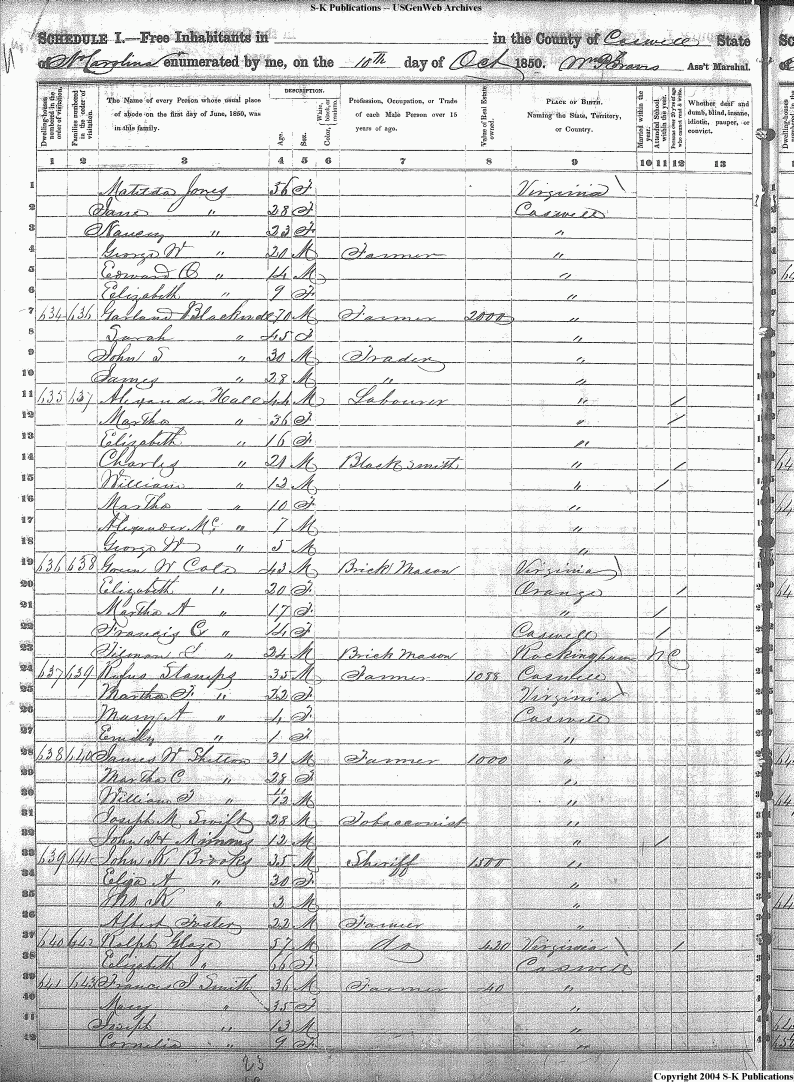 S-K Publications -- USGenWeb Archives
SCHEDULE I.—Free Inhabitants in in the County of Caswell State
of N. Carolina enumerated by me, on the 10th day of Oct 1850. Ass't Marshal.
DESCRIPTION.
Dwelling-houses numbered in the order of visitation.
Families numbered in the order of visitation.
The Name of every Person whose usual place of abode on the first day of June, 1850, was in this family.
Age.
Sex.
Color, White, black, or mulatto.
Profession, Occupation, or Trade of each Male Person over 15 years of age.
Value of Real Estate owned.
PLACE OF BIRTH. Naming the State, Territory, or Country.
Married within the year.
Attended School within the year.
Persons over 20 y'rs of age who cannot read & write.
Whether deaf and dumb, blind, insane, idiotic, pauper, or convict.
1 2 3 4 5 6 7 8 9 10 11 12 13
1 Matilda Jones 56 F Virginia \
2 Jane " 28 F Caswell
3 Nancy " 23 F "
4 George W " 20 M Farmer "
5 Edward " 14 M "
6 Elizabeth " 9 F "
7 634 636 Garland 70 M Farmer 2000 "
8 Sarah " 45 F "
9 John S " 30 M Trader "
10 James " 28 M " "
11 635 637 Alexander Hall 44 M Labourer " /
12 Martha " 36 F " /
13 Elizabeth " 16 F "
14 Charles " 21 M Black Smith " /
15 William " 12 M " /
16 Martha " 10 F "
17 Alexander Mc " 7 M "
18 George W " 5 M "
19 636 638 Green W Cole 43 M Brick Mason Virginia \
20 Elizabeth " 20 F Orange /
21 Martha A " 17 F " /
22 Francis C " 14 F Caswell /
23 Tilman " 24 M Brick Mason Rockingham N C
24 637 639 Rufus Stamps 35 M Farmer 1088 Caswell
25 Martha F. " 22 F Virginia \
26 Mary A " 4 F Caswell
27 Emily " 1 F "
28 638 640 James W Shelton 31 M Farmer 1000 "
29 Martha C " 28 F "
30 William " M "
31 Joseph M Swift 28 M Tobacconist "
32 John H 12 M " /
33 639 641 John K Brooks 35 M Sheriff 1500 "
34 Eliza A " 30 F "
35 Jno K " 3 M "
36 Albert Foster 22 M Farmer "
37 640 642 Ralph Glaze 57 M do 420 Virginia \ /
38 Elizabeth " 66 F Caswell
39 641 643 Francis J Smith 36 M Farmer 40 "
40 Mary " 35 F "
41 Joseph " 13 M "
42 Cornelia " 9 F "
23
Copyright 2004 S-K Publications